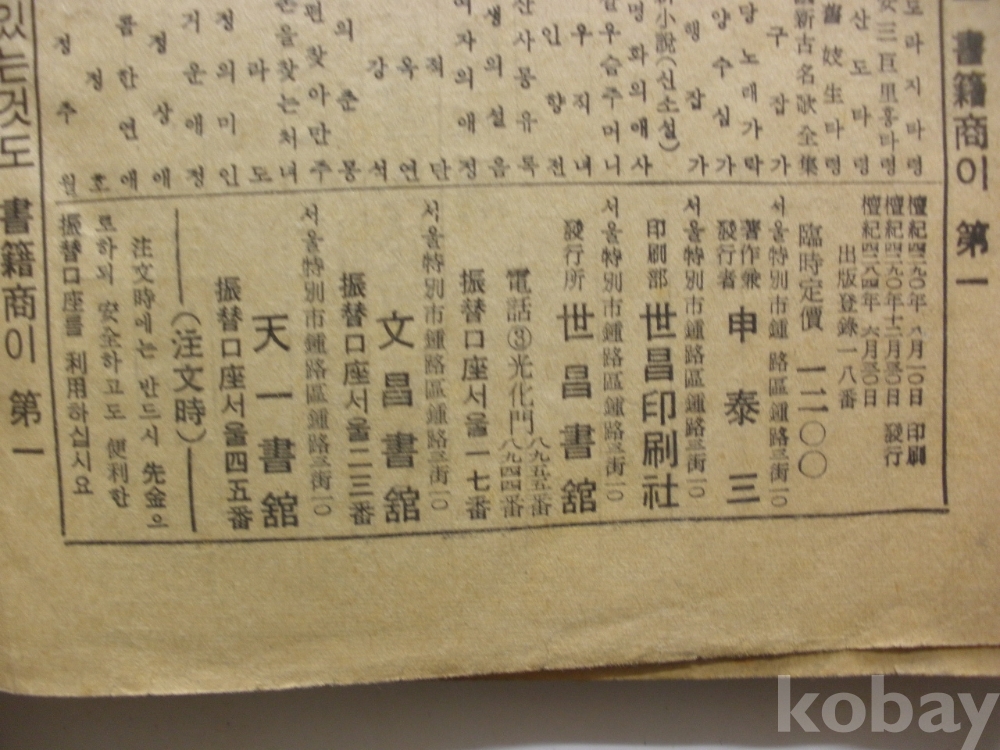 書籍商이 第一
라지타령
安三巨里흥타령
산도타령
舊妓生타령
新古名歌全集
구잡가
당노래가락
양수심가
행잡가
小說(신소설)
명화의애사
우슴주머니
우직녀
인향전
산사몽유록
생의설음
여자의애정
적단
옥연
강석
의춘몽
편찾아만주
찾는처녀
라도
정의미인
거운애정
정상애
콤한연애
정호
정주월
檀紀四二九〇年 八月一〇日 印刷
檀紀四二九〇年十二月三〇日 發行
檀紀四二八四年 六月三〇日
出版登錄一八番
臨時定價 一二〇〇
서울特別市鍾路區鍾路三街一〇
著作兼
發行者 申泰三
서울特別市鍾路區鍾路三街一〇
印刷部 世昌印刷社
서울特別市鍾路區鍾路三街一〇
發行所 世昌書舘
電話③光化門 八九五五番
八九四四番
振替口座서울一七番
서울特別市鍾路區鍾路三街一〇
文昌書舘
振替口座서울二三番
서울特別市鍾路區鍾路三街一〇
天一書舘
振替口座서울四五番
(注文時)
注文時에는 반드시 先金으
로하되 安全하고도 便利한
振替口座를 利用하십시요
있는것도 書籍商이 第一
kobay